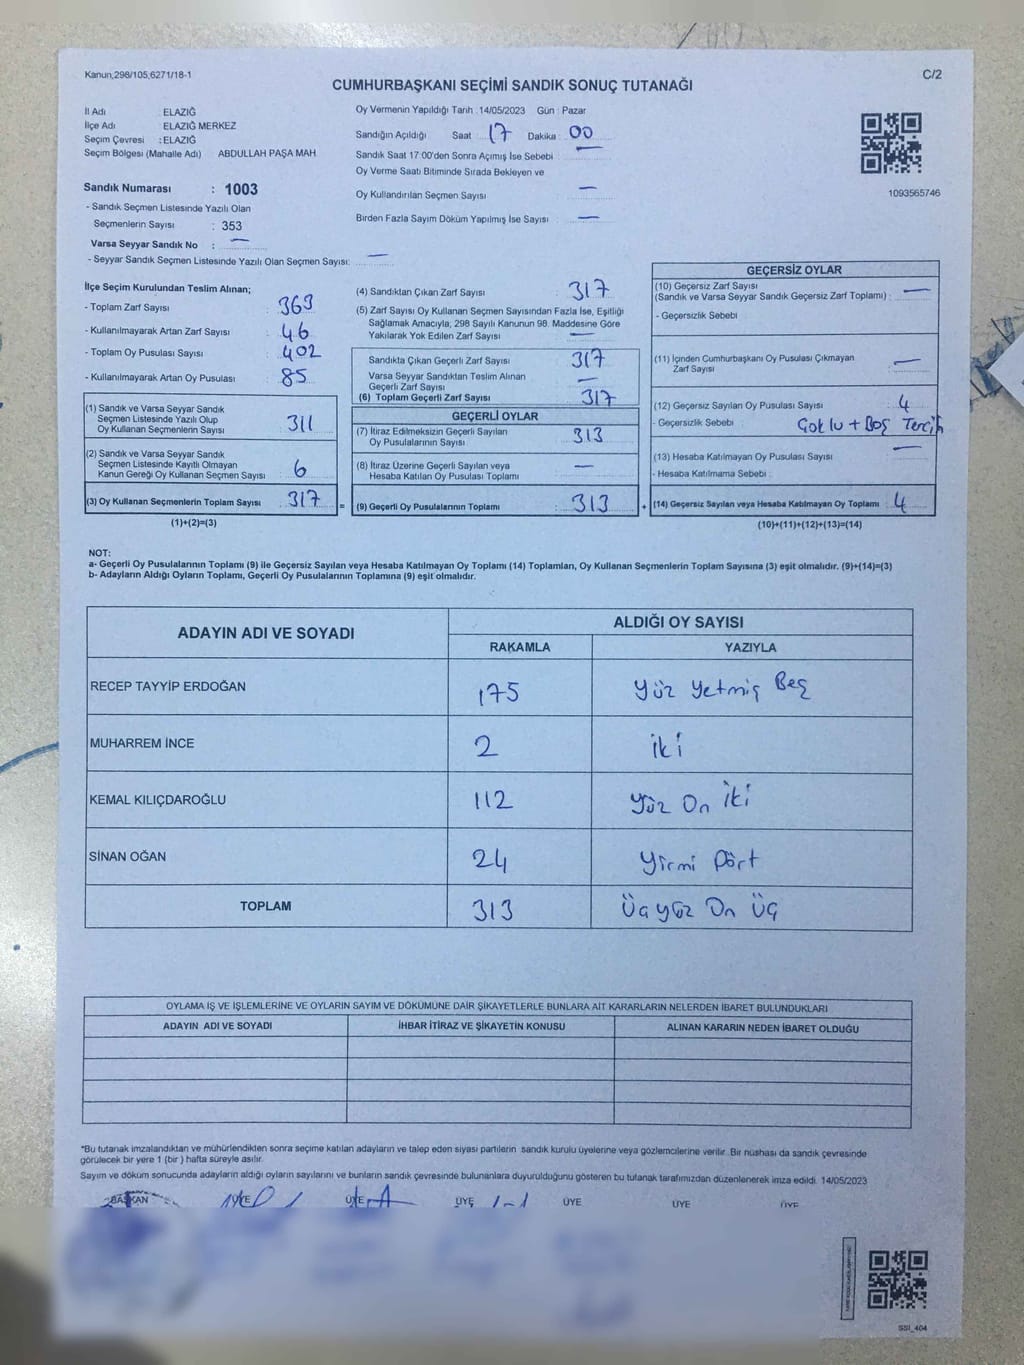 Kanun,298/105,6271/18-1
C/2
CUMHURBAŞKANI SEÇİMİ SANDIK SONUÇ TUTANAĞI
İl Adı : ELAZIĞ
İlçe Adı : ELAZIĞ MERKEZ
Seçim Çevresi : ELAZIĞ
Seçim Bölgesi (Mahalle Adı) ABDULLAH PAŞA MAH
Sandık Numarası : 1003
- Sandık Seçmen Listesinde Yazılı Olan
Seçmenlerin Sayısı : 353
Varsa Seyyar Sandık No : —
- Seyyar Sandık Seçmen Listesinde Yazılı Olan Seçmen Sayısı: —
Oy Vermenin Yapıldığı Tarih : 14/05/2023 Gün : Pazar
Sandığın Açıldığı Saat 17 Dakika : 00
Sandık Saat 17:00'den Sonra Açımış İse Sebebi —
Oy Verme Saati Bitiminde Sırada Bekleyen ve
Oy Kullandırılan Seçmen Sayısı —
Birden Fazla Sayım Döküm Yapılmış İse Sayısı : —
1093565746
İlçe Seçim Kurulundan Teslim Alınan;
- Toplam Zarf Sayısı : 363
- Kullanılmayarak Artan Zarf Sayısı : 46
- Toplam Oy Pusulası Sayısı : 402
- Kullanılmayarak Artan Oy Pusulası : 85
(1) Sandık ve Varsa Seyyar Sandık
Seçmen Listesinde Yazılı Olup
Oy Kullanan Seçmenlerin Sayısı : 311
(2) Sandık ve Varsa Seyyar Sandık
Seçmen Listesinde Kayıtlı Olmayan
Kanun Gereği Oy Kullanan Seçmen Sayısı : 6
(3) Oy Kullanan Seçmenlerin Toplam Sayısı : 317 =
(1)+(2)=(3)
(4) Sandıktan Çıkan Zarf Sayısı : 317
(5) Zarf Sayısı Oy Kullanan Seçmen Sayısından Fazla İse, Eşitliği
Sağlamak Amacıyla, 298 Sayılı Kanunun 98. Maddesine Göre
Yakılarak Yok Edilen Zarf Sayısı : —
Sandıkta Çıkan Geçerli Zarf Sayısı : 317
Varsa Seyyar Sandıktan Teslim Alınan
Geçerli Zarf Sayısı —
(6) Toplam Geçerli Zarf Sayısı : 317
GEÇERLİ OYLAR
(7) İtiraz Edilmeksizin Geçerli Sayılan
Oy Pusulalarının Sayısı : 313
(8) İtiraz Üzerine Geçerli Sayılan veya
Hesaba Katılan Oy Pusulası Toplamı : —
(9) Geçerli Oy Pusulalarının Toplamı : 313 +
GEÇERSİZ OYLAR
(10) Geçersiz Zarf Sayısı
(Sandık ve Varsa Seyyar Sandık Geçersiz Zarf Toplamı) : —
- Geçersizlik Sebebi :
(11) İçinden Cumhurbaşkanı Oy Pusulası Çıkmayan
Zarf Sayısı : —
(12) Geçersiz Sayılan Oy Pusulası Sayısı : 4
- Geçersizlik Sebebi : Çoklu + Boş Tercih
(13) Hesaba Katılmayan Oy Pusulası Sayısı : —
- Hesaba Katılmama Sebebi :
(14) Geçersiz Sayılan veya Hesaba Katılmayan Oy Toplamı : 4
(10)+(11)+(12)+(13)=(14)
NOT:
a- Geçerli Oy Pusulalarının Toplamı (9) ile Geçersiz Sayılan veya Hesaba Katılmayan Oy Toplamı (14) Toplamları, Oy Kullanan Seçmenlerin Toplam Sayısına (3) eşit olmalıdır. (9)+(14)=(3)
b- Adayların Aldığı Oyların Toplamı, Geçerli Oy Pusulalarının Toplamına (9) eşit olmalıdır.
ADAYIN ADI VE SOYADI
ALDIĞI OY SAYISI
RAKAMLA YAZIYLA
RECEP TAYYİP ERDOĞAN 175 Yüz Yetmiş Beş
MUHARREM İNCE 2 İki
KEMAL KILIÇDAROĞLU 112 Yüz On İki
SİNAN OĞAN 24 Yirmi Dört
TOPLAM 313 Üçyüz On Üç
OYLAMA İŞ VE İŞLEMLERİNE VE OYLARIN SAYIM VE DÖKÜMÜNE DAİR ŞİKAYETLERLE BUNLARA AİT KARARLARIN NELERDEN İBARET BULUNDUKLARI
ADAYIN ADI VE SOYADI İHBAR İTİRAZ VE ŞİKAYETİN KONUSU ALINAN KARARIN NEDEN İBARET OLDUĞU
*Bu tutanak imzalandıktan ve mühürlendikten sonra seçime katılan adayların ve talep eden siyasi partilerin sandık kurulu üyelerine veya gözlemcilerine verilir. Bir nüshası da sandık çevresinde
görülecek bir yere 1 (bir ) hafta süreyle asılır.
Sayım ve döküm sonucunda adayların aldığı oyların sayılarını ve bunların sandık çevresinde bulunanlara duyurulduğunu gösteren bu tutanak tarafımızdan düzenlenerek imza edildi. 14/05/2023
BAŞKAN ÜYE ÜYE ÜYE ÜYE ÜYE ÜYE
SSI_404